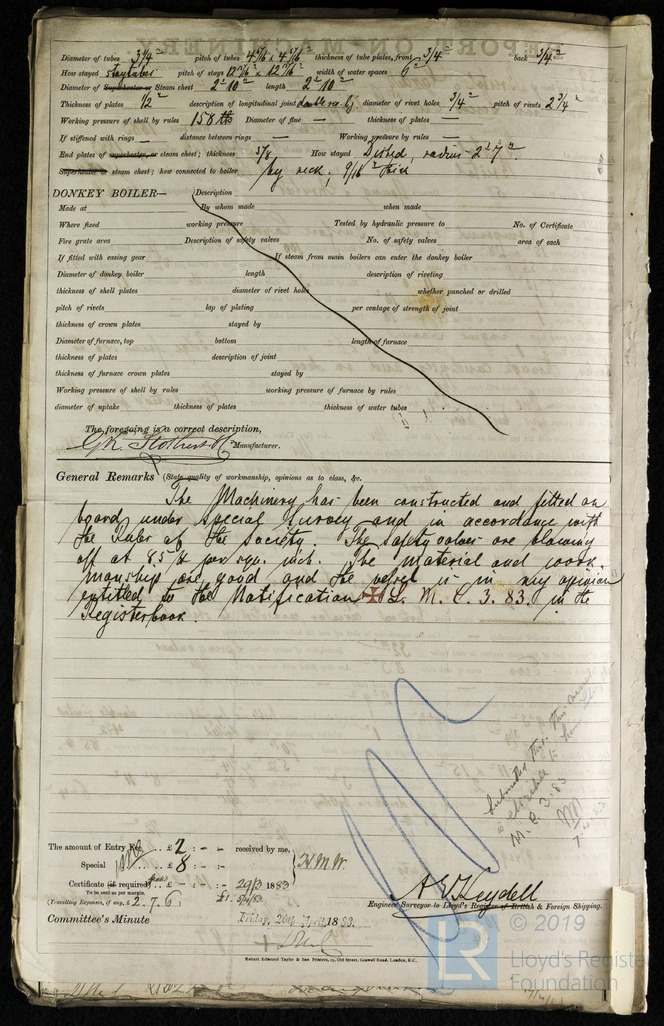 Diameter of tubes 3 1/4" pitch of tubes 4 5/16 x 4 5/16" thickness of tube plates, front 3/4" back 3/4"
How stayed staytubes pitch of stays width of water spaces 6"
Diameter of Superheater or Steam chest 2' 10" length 2' 10"
Thickness of plates 1/2 description of longitudinal joint diameter of rivet holes 3/4" pitch of rivets 2 3/4"
Working pressure of shell by rules 158 lbs Diameter of flue — thickness of plates —
If stiffened with rings — distance between rings — Working pressure by rules —
End plates of superheater, or steam chest; thickness 5/8 How stayed Dished, radius 2' 7"
Superheater or steam chest; how connected to boiler by neck, 9/16" thick
DONKEY BOILER— Description
Made at By whom made when made
Where fixed working pressure Tested by hydraulic pressure to No. of Certificate
Fire grate area Description of safety valves No. of safety valves area of each
If fitted with easing gear If steam from main boilers can enter the donkey boiler
Diameter of donkey boiler length description of riveting
thickness of shell plates diameter of rivet holes whether punched or drilled
pitch of rivets lap of plating per centage of strength of joint
thickness of crown plates stayed by
Diameter of furnace, top bottom length of furnace
thickness of plates description of joint
thickness of furnace crown plates stayed by
Working pressure of shell by rules working pressure of furnace by rules
diameter of uptake thickness of plates thickness of water tubes
The foregoing is a correct description,
Manufacturer.
General Remarks (State quality of workmanship, opinions as to class, &c.
The Machinery has been constructed and fitted on
board under special survey and in accordance with
the Rules of the Society. The safety valves are blowing
off at 85 lb per sqr. inch. The material and work-
manship are good and the vessel is in my opinion
entitled to the Notification ✠ L. M. C. 3. 83. in the
Registerbook.
Submitted that this vessel
is eligible to have
M. C. 3. 83
The amount of Entry Fee .. £ 2 : - : - received by me,
Special .. £ 8 : - : -
Certificate (if required) .. £ - : - : - 29/3 1883
To be sent as per margin.
(Travelling Expenses, if any, £ 2. 7. 6)
Engineer Surveyor to Lloyd's Register of British & Foreign Shipping.
Committee's Minute Friday, 20th April, 1883.
Robert Edmund Taylor & Son Printers, 19, Old Street, Goswell Road, London, E.C.
© 2019
LR
Lloyd's Register
Foundation